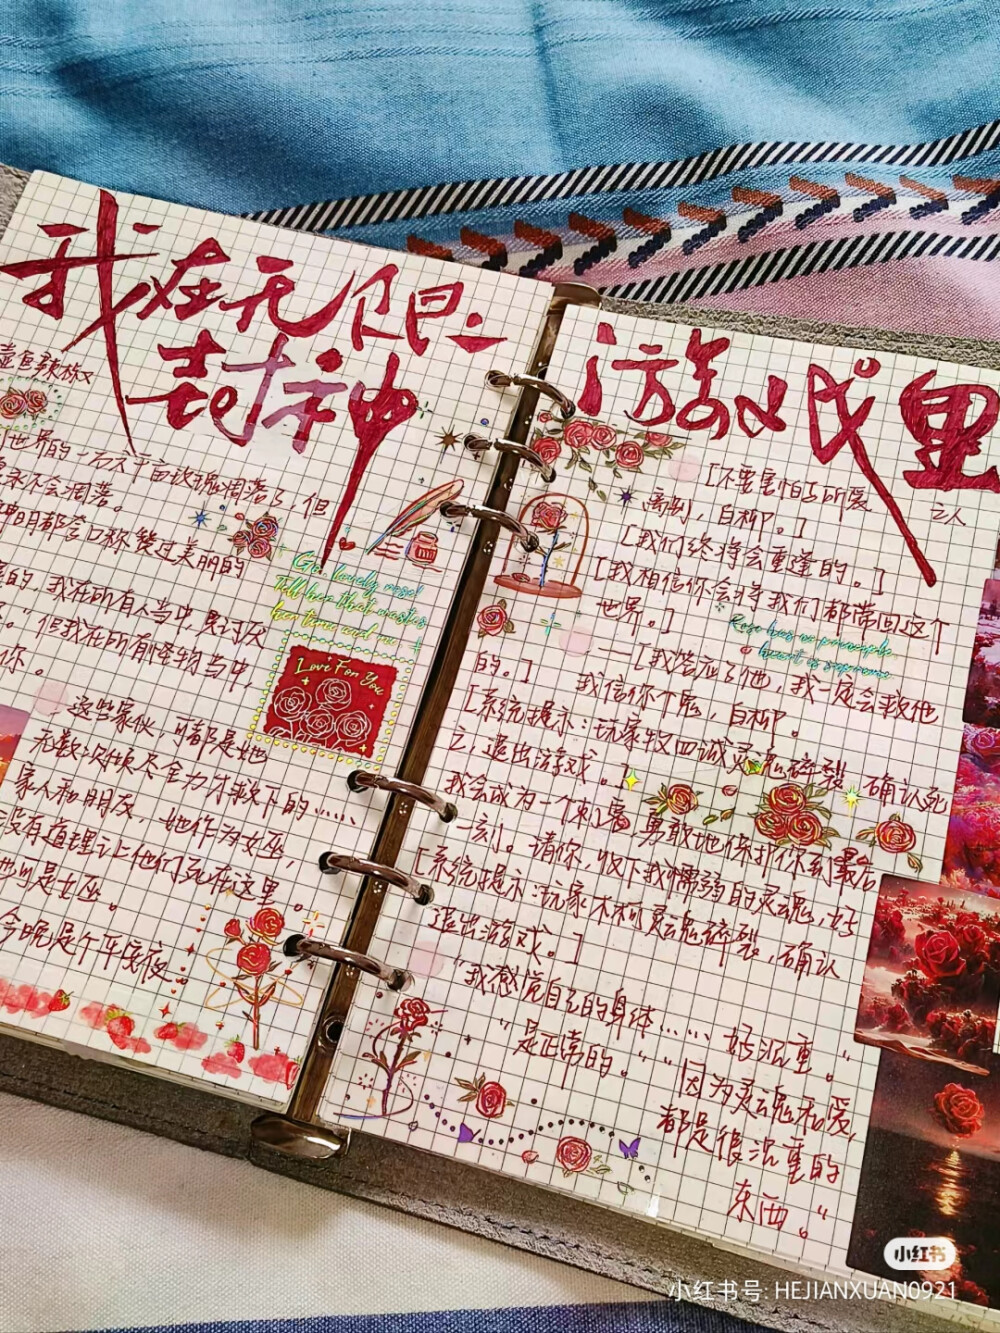 我在无限
游戏里
封神
壶鱼辣椒
世界的一万人千亩玫瑰凋落了，但
永不会凋落。
神明都会口称赞过美丽的
的，我在所有人当中，最讨厌
。”但我在所有怪物当中，
你。
Go, lovely rose!
Tell her that wastes
her time and me
Love For You
这些家伙，可都是她
无数次倾尽全力才救下的……
家人和朋友，她作为女巫，
没有道理让他们死在这里。
她可是女巫。
今晚是个平安夜。
[不要害怕与所爱之人
离别，白柳。]
[我们终将会重逢的。]
[我相信你会将我们都带回这个
世界。]
Rose has no
heart is supreme
——[我答应了他，我一定会救他
的。] 我信你个鬼，白柳。
[系统提示：玩家牧四诚灵魂碎裂，确认死
亡，退出游戏。]
我会成为一个[刺]客，勇敢地保护你到最后
一刻。请你，收下我懦弱的灵魂，好
[系统提示：玩家木柯灵魂碎裂，确认
退出游戏。]
“我感觉自己的身体……好沉重。”
“是正常的。”“因为灵魂和爱，
都是很沉重的
东西。”
小红书
小红书号: HEJIANXUAN0921